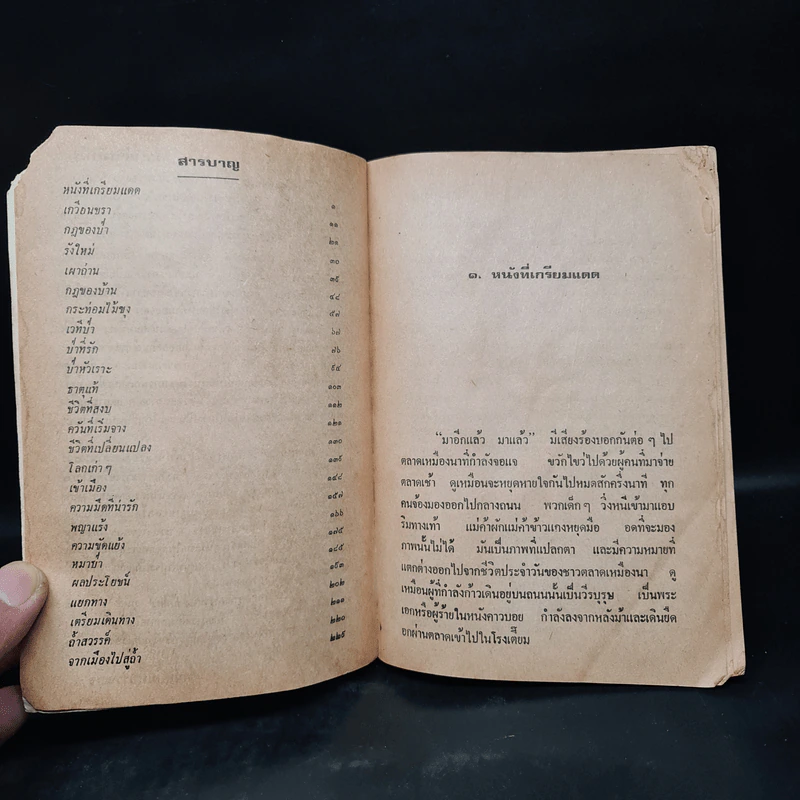 สารบาญ
หนังที่เกรียมแดด ๑
เกวียนชรา ๑๑
กฎของป่า ๒๑
รังใหม่ ๓๐
เผาถ่าน ๓๙
กฎของบ้าน ๔๘
กระท่อมไม้ซุง ๕๗
เวทีป่า ๖๗
ป่าที่รัก ๗๖
ป่าหัวเราะ ๙๔
ธาตุแท้ ๑๐๓
ชีวิตที่สงบ ๑๑๒
ควันที่เริ่มจาง ๑๒๑
ชีวิตที่เปลี่ยนแปลง ๑๓๐
โลกเก่าๆ ๑๓๙
เข้าเมือง ๑๔๘
ความมืดที่น่ารัก ๑๕๗
พญาแร้ง ๑๖๖
ความขัดแย้ง ๑๗๕
หมาป่า ๑๘๕
ผลประโยชน์ ๑๙๓
แยกทาง ๒๐๒
เตรียมเดินทาง ๒๑๑
ถ้าสวรรค์ ๒๒๐
จากเมืองไปสู่ถ้ำ ๒๒๙
๑. หนังที่เกรียมแดด
“มาอีกแล้ว มาแล้ว” มีเสียงร้องบอกกันต่อ ๆ ไป
ตลาดเหมืองนาที่กำลังจอแจ ขวักไขว่ไปด้วยผู้คนที่มาจ่าย
ตลาดเช้า ดูเหมือนจะหยุดหายใจกันไปหมดสักครึ่งนาที ทุก
คนจ้องมองออกไปกลางถนน พวกเด็ก ๆ วิ่งหนีเข้ามาแอบ
ริมทางเท้า แม่ค้าผักแม่ค้าข้าวแกงหยุดมือ อดที่จะมอง
ภาพนั้นไม่ได้ มันเป็นภาพที่แปลกตา และมีความหมายที่
แตกต่างออกไปจากชีวิตประจำวันของชาวตลาดเหมืองนา ดู
เหมือนผู้ที่กำลังก้าวเดินอยู่บนถนนนั้นเป็นวีรบุรุษ เป็นพระ
เอกหรือผู้ร้ายในหนังคาวบอย กำลังลงจากหลังม้าและเดินยืด
อกผ่านตลาดเข้าไปในโรงเตี๊ยม